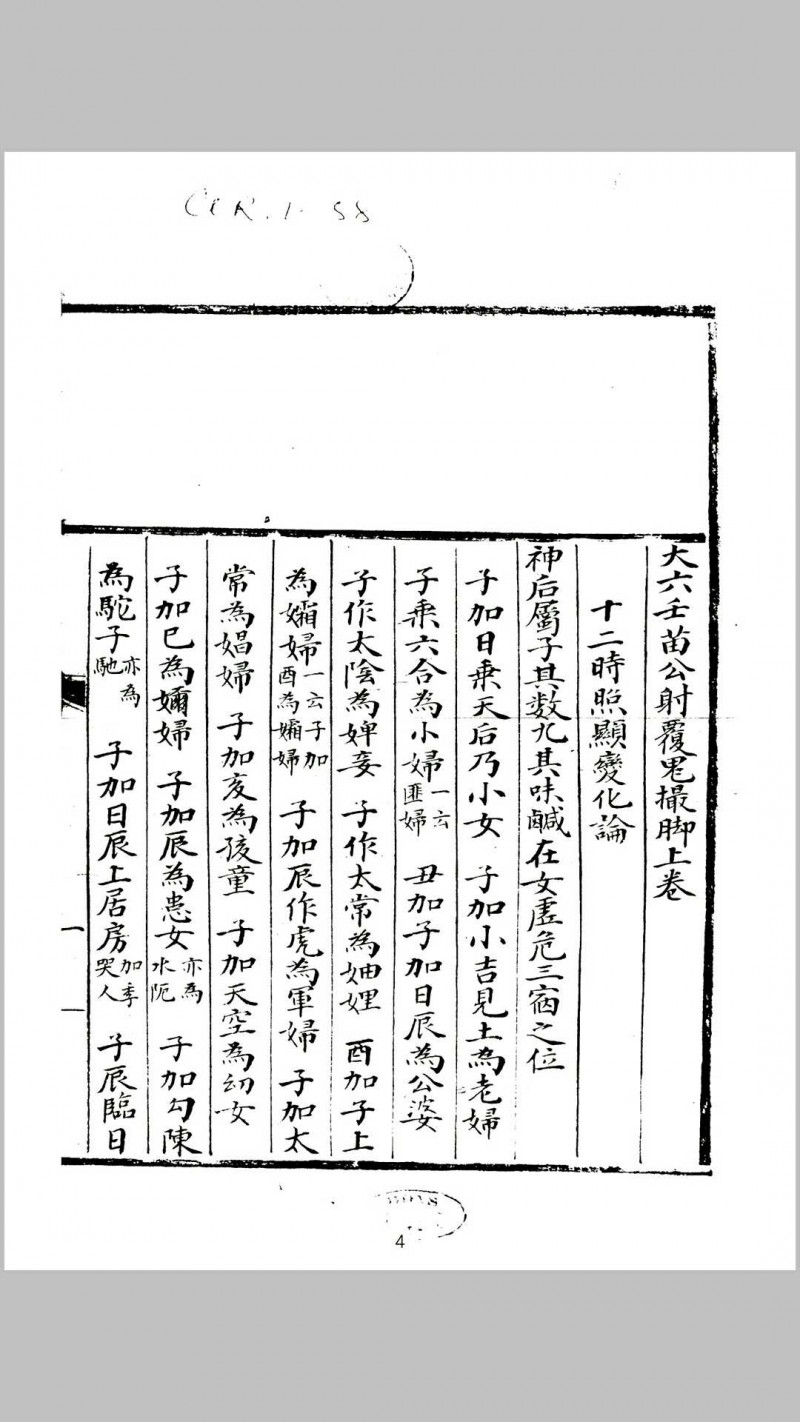 CCR.1-58
大六壬苗公射覆鬼撮脚上卷
十二時照顯變化論
神后屬子其數九其味鹹在女虛危三宿之位
子加日乘天后乃小女 子加小吉見土為老婦
子乘六合為小婦一云匪婦 丑加子加日辰為公婆
子作太陰為婢妾 子作太常為妯娌 酉加子上
為孀婦一云子加酉為孀婦 子加辰作虎為軍婦 子加太
常為娼婦 子加亥為孩童 子加天空為幼女
子加巳為孀婦 子加辰為患女亦為水阨 子加勾陳
為駝子亦為馳 子加日辰上居房加季哭人 子辰臨日
一
4